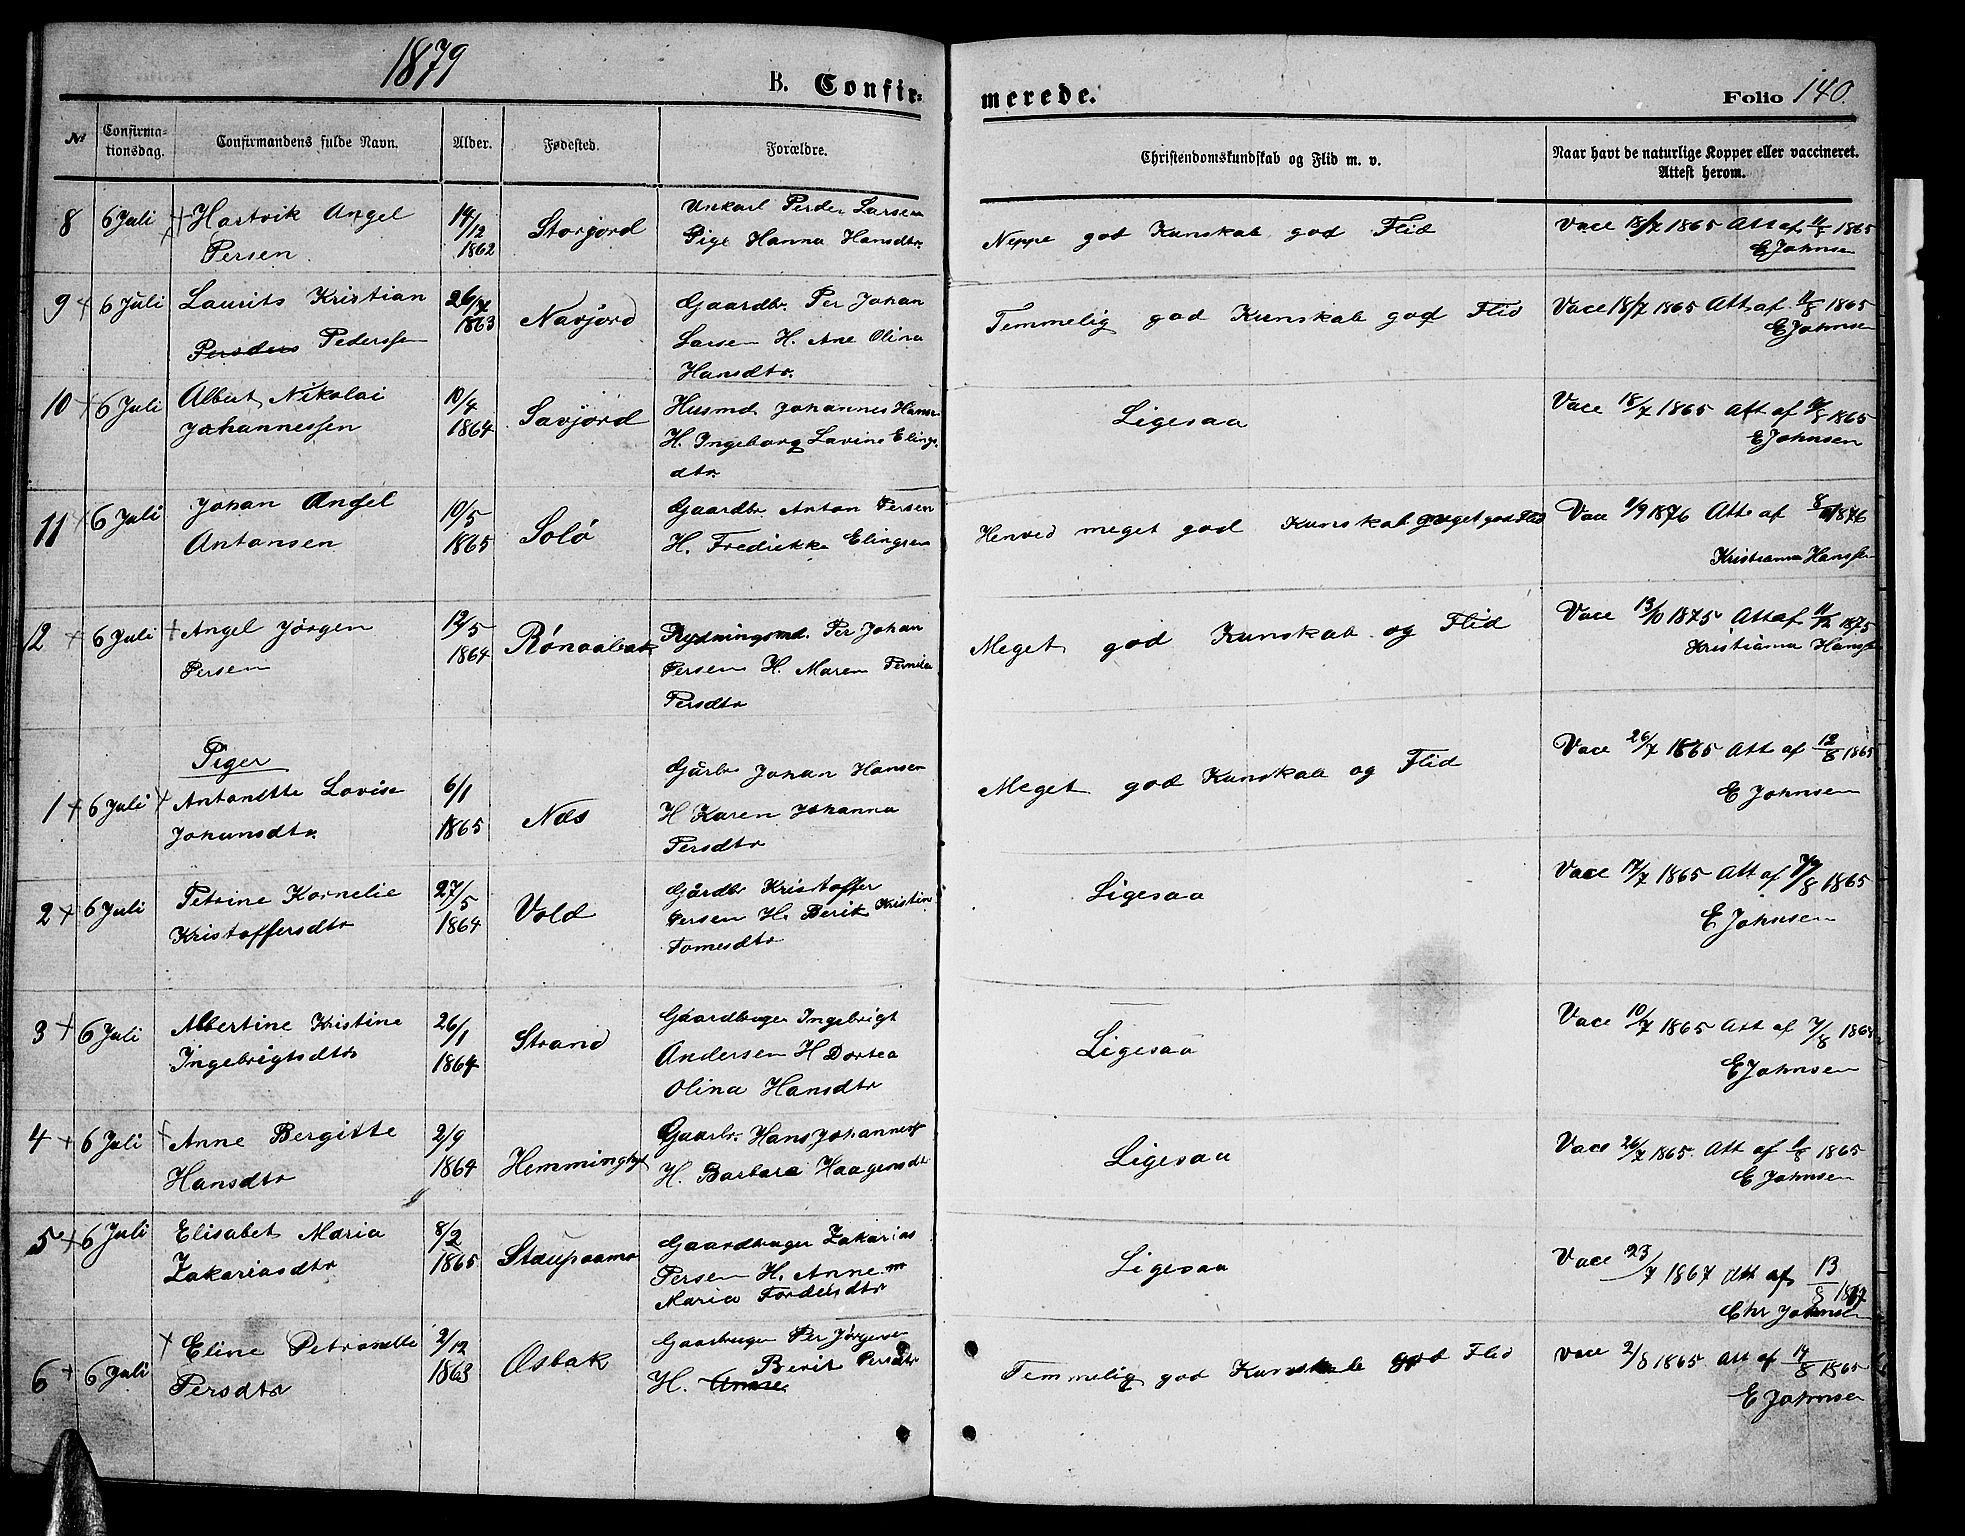 1879
B. Confir-
merede.
Folio 140.
№
Confirma-
tionsdag.
Confirmandens fulde Navn.
Alder.
Fødested.
Forældre.
Christendomskundskab og Flid m. v.
Naar havt de naturlige Kopper eller vaccineret.
Attest herom.
8 6 Juli Hartvik Angel
Persen
14/12
1862
Storjord
Unkarl Perder Larsen
Pige Hanna Hansdtr
Neppe god Kunskab god Flid
Vace 18/7 1865 Att af 11/8 1865
E Johnsen
9 6 Juli Laurits Kristian
Pedersen
26/7
1863
Navjord
Gaardbr. Per Johan
Larsen H. Ane Olina
Hansdtr.
Temmelig god Kunskab god Flid
Vace 18/7 1865 Att af 11/8 1865
E Johnsen
10 6 Juli Albert Nikolai
Johannessen
10/4
1864
Savjord
Husmd Johannes Hans
H. Ingeborg Lavine Elings
dtr
Ligesaa
Vace 18/7 1865 Att af 1865
E Johnsen
11 6 Juli Johan Angel
Antonsen
10/5
1865
Solö
Gaardbr Anton Persen
H. Fredrikke Elingsen
Henved meget god Kunskab meget god Flid
Vace 11/9 1876 Att af 1876
Kristianna Hanssen
12 6 Juli Angel Jörgen
Persen
12/5
1864
Rönaabak
Rydningsmd. Per Johan
Persen H. Maren Pernila
Persdtr
Meget god Kunskab og Flid
Vace 13/10 1875 Att af 11/12 1875
Kristianna Hanssen
Piger
1 6 Juli Antonette Lovise
Johansdtr
6/1
1865
Næs
Gårbr Johan Hansen
H Karen Johanna
Persdtr
Meget god Kunskab og Flid
Vace 26/7 1865 Att af 12/8 1865
E Johnsen
2 6 Juli Petrine Kornelie
Kristoffersdtr
27/5
1864
Vold
Gårdbr Kristoffer
Persen H. Berit Kristin
Tomesdtr
Ligesaa
Vace 17/7 1865 Att af 1865
E Johnsen
3 6 Juli Albertine Kristine
Ingebrigtsdtr
26/1
1864
Strand
Gaardbruger Ingebrigt
Andersen H Dortea
Olina Hansdtr
Ligesaa
Vace 10/7 1865 Att af 7/8 1865
E Johnsen
4 6 Juli Anne Bergitte
Hansdtr
2/9
1864
Hemminghyt
Gaarbr. Hans Johannes
H. Barbara Haagensdtr
Ligesaa
Vace 26/7 1865 Att af 11/8 1865
E Johnsen
5 6 Juli Elisabet Maria
Zakariasdtr
8/2
1865
Staupaamo
Gaardbruger Zakarias
Persen H. Anne
Maria Tordersdtr
Ligesaa
Vace 23/7 1867 Att af 13/8 1867
Chr Johnsen
6 6 Juli Eline Petronelle
Persdtr
2/12
1863
Osbak
Gaarbruger Per Jörgensen
Berit Persdtr
H. Anne
Temmelig god Kunskab god Flid
Vace 2/8 1865 Att af 14/8 1865
E Johnsen